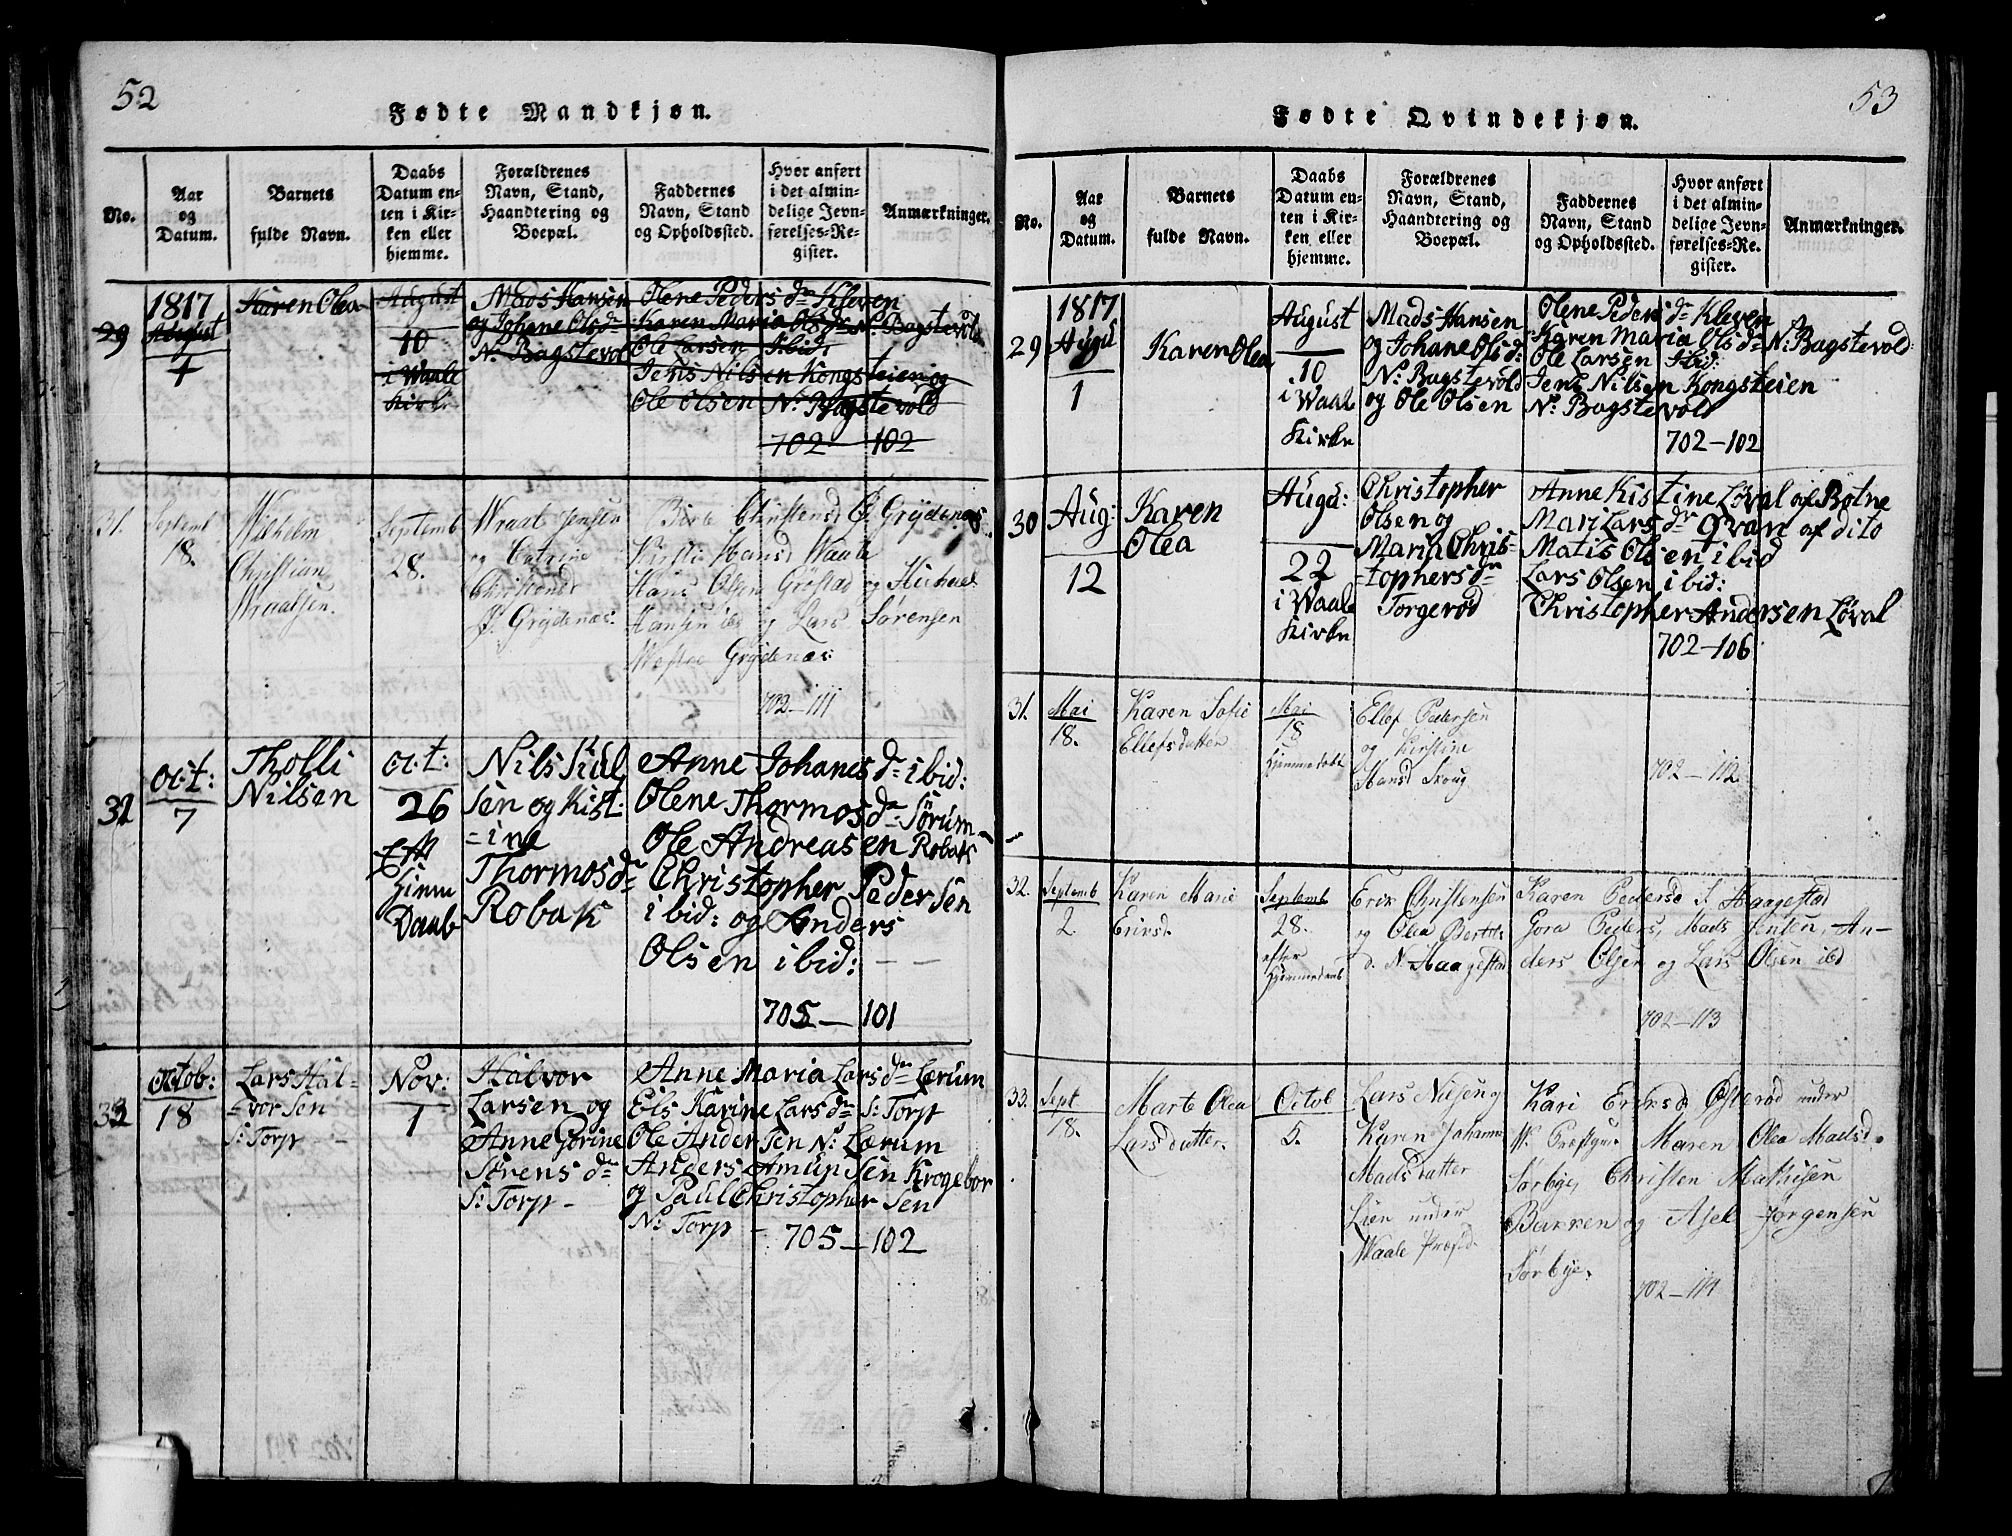 52
Fødte Mandkjøn.
No.
Aar
og
Datum.
Barnets
fulde Navn.
Daabs
Datum en-
ten i Kir-
ken eller
hjemme.
Forældrenes
Navn, Stand,
Haandtering og
Boepæl.
Faddernes
Navn, Stand
og Opholdssted.
Hvor anført
i det almin-
delige Jevn-
førelses-Re-
gister.
Anmærkninger.
29
1817
August
1
Karen Olea
August
10
i Waale
Kirke
Mads Hansen
og Johane Olsdr
Nr: Bagstevol
Olene Peders dr Kleven
Karen Maria Olsdr Nr: Bagstevold
Ole Larsen Ibid:
Jens Nilsen Kongsteien og
Ole Olsen Nr: Bagstevold
702 - 102
31.
Septemb
18.
Wilhelm
Christian
Wraalsen.
Septemb
28.
Wraal Jensen
og Catrine
Christensd
Ø. Grydenæs:
Birte Christensd Ø. Grydenæs
Kirsti Hansd Waale
Hans Olsen Gröstad og Michael
Hansen ibd og Lars Sørensen
Westre Grydenæs:
702-111
32
Oct:
7
Tholli
Nilsen
Oct:
26
Eft
Hiem
Daab
Nils Kiil
sen og Kist
=ine
Thormosdr
Robak
Anne Johanes dr ibid:
Olene Thormos dr Sørum
Ole Andreasen Robak
Christopher Pedersen
ibid: og Anders
Olsen ibid: - -
705 - 101
33
Octob:
18
Lars Hal=
=vorsen
S: Torp -
Nov:
1
Halvor
Larsen og
Anne Gorine
Sørens dr
S: Torp -
Anne Maria Lars dr Lærum
Els Karine Lars dr S: Torp
Ole Andersen Nr: Lærum
Anders Amundsen Krogebor
og Paul Christophersen
Nr: Torp -
705 - 102
53
Fødte Qvindekjøn.
No.
Aar
og
Datum.
Barnets
fulde Navn.
Daabs
Datum en-
ten i Kir-
ken eller
hjemme.
Forældrenes
Navn, Stand,
Haandtering og
Boepæl.
Faddernes
Navn, Stand,
og Opholdssted.
Hvor anført
i det almin-
delige Jevn-
førelses-Re-
gister.
Anmærkninger.
29
1817
Augu
1
Karen Olea
August
10
i Waale
Kirke
Mads Hansen
og Johane Olsd:
Nr: Bagstevold
og Ole Olsen
Olene Peders dr Kleven
Karen Maria Olsdr Nr: Bagstevold:
Ole Larsen Ibid:
Jens Nilsen Kongsteien
Nr: Bagstevold
702-102
30
Aug:
12
Karen
Olea
Augu:
22
i Waale
Kirke
Christopher
Olsen og
Maria Chris=
=tophersdr
Torgerød
Anne Kistine Løval af Botne
Mari Lars dr Qvan af dito
Matis Olsen ibid
Lars Olsen ibid:
Christopher Andersen Løval
702-106
31.
Mai
18.
Karen Sofie
Ellefsdatter
Mai
18
Hjemmedøbt
Ellef Pedersen
og Kirstine
Hansd Skoug
702-112
32.
Septemb
2
Karen Marie
Eriksd.
Septemb
28.
efter
Hjemmedaab
Erik Christensen
og Olea Bertels
d. N. Haagestad
Karen Pedersd S. Haagestad
Gora Peders, Mads Jensen, An-
ders Olsen og Lars Olsen ibd
702-113
33.
Sept
18.
Marte Olea
Larsdatter.
Octob
5.
Lars Nilsen og
Karen Johanne
Madsdatter
Lien under
Waale Præstd.
Kari Eriksd Østerød under
W. Præstgu. Maren Olea Madsd.
Sørbye, Christen Mathisen
Bakken og Axel Jørgensen
Sørbye.
702-114